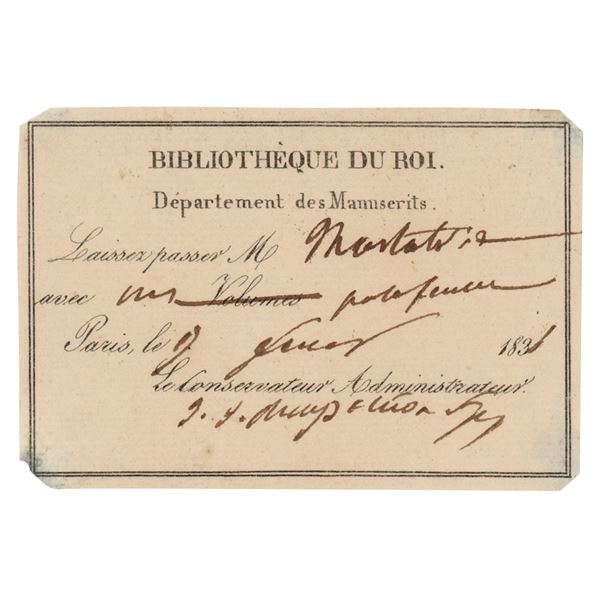 BIBLIOTHÈQUE DU ROI.
Département des Manuscrits.
Laissez passer M
avec un Volumes portefeuille
Paris, le 9 1831
Le Conservateur Administrateur.
J. J. Champollion fgc